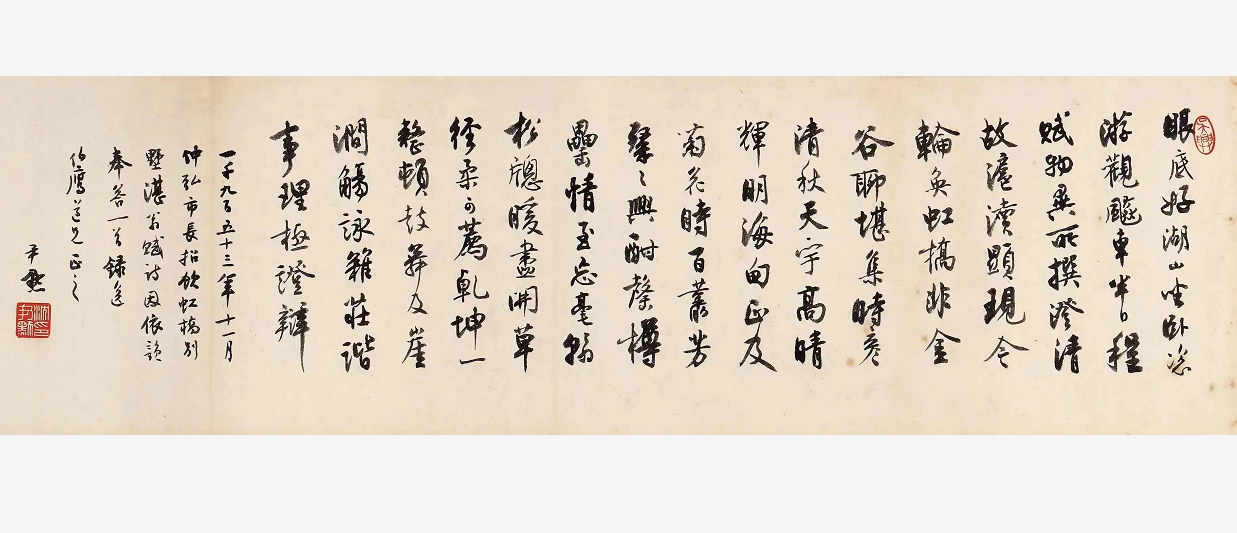 眼底好湖山坐卧恣
游觀飈車半日程
賦物異所撰澄清
故滬瀆顯現今
輪奐虹橋非金
谷聊堪集時彥
清秋天宇高晴
輝明海甸正及
菊花時百叢芳
粲〻興酣罄樽
罍情至忘毫翰
松牕暖盡開草
徑柔可薦乾坤一
整頓鼓舞及崖
澗觴詠雜莊諧
事理極證辯
一千九百五十三年十一月
仲弘市長招飲虹橋別
墅湛翁賦詩因依韻
奉答一首錄是
伯鷹道兄正之
尹默